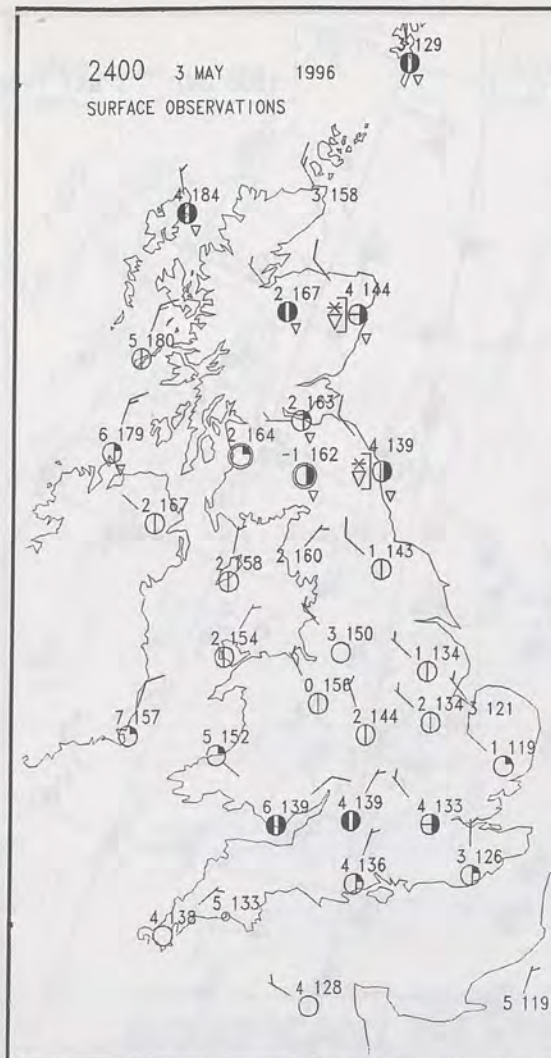 3 129
2400 3 MAY 1996
SURFACE OBSERVATIONS
4 184
3 158
2 167
4 144
5 180
2 163
6 179
2 164
-1 162
4 139
2 167
2 158
2 160
1 143
2 154
3 150
1 134
0 156
2 144
2 134
3 121
7 157
5 152
1 119
6 139
4 139
4 133
4 136
3 126
5 133
4 138
4 128
5 119